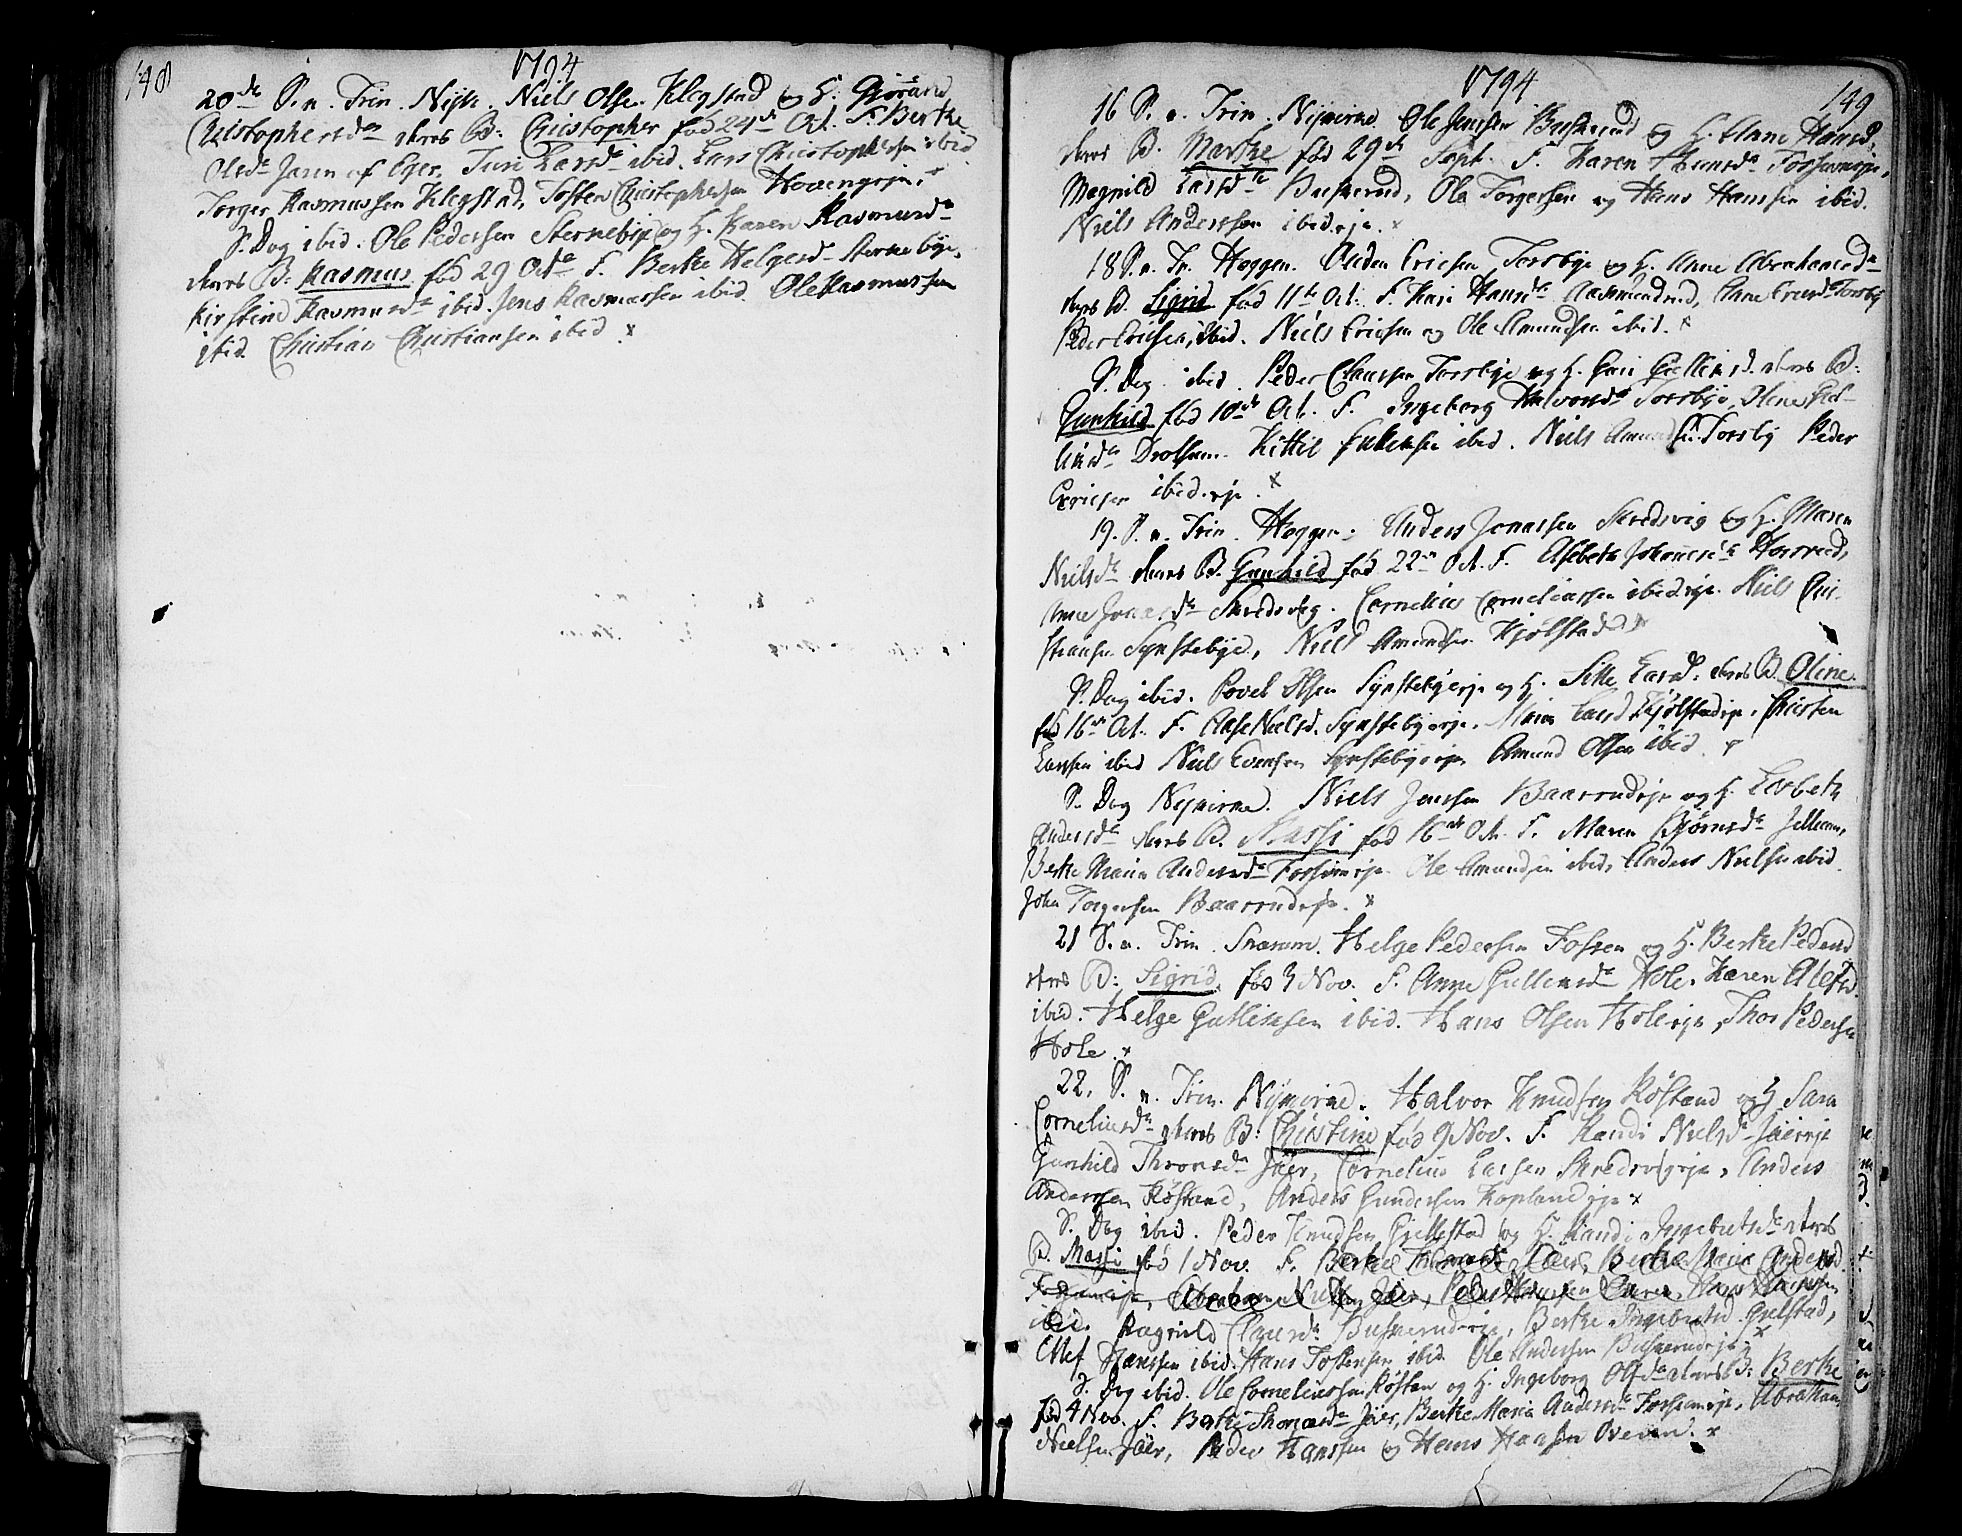 148
1794
20de S. n. Trin. Nyk. Niels Olsen Klegstad og H. Giörand
Christophersdr deres B: Christopher fød 24de Oct. F. Berthe
Olsdr Jaren af Eger. Turi Larsdr ibid. Lars Christophersen ibid
Torger Rasmussen Klegstad, Tosten Christophersen Hovengeje. x
S. Dag ibid. Ole Pedersen Sternebÿe og H. Karen Rasmusdr
deres B: Rasmus fød 29 Octr F. Berthe Helgesdr Sternebÿe,
Kirstine Rasmusdr ibid. Jens Rasmussen ibid Ole Rasmussen
ibid. Christian Christiansen ibid x
1794
149
16 S. n. Trin. Nykirke. Ole Jensen Buskerud og H. Anne Hansd.
deres B. Marthe fød 29de Sept. F. Karen Hansdr Fossumeje,
Magnild Larsdr Buskerud, Ole Torgersen og Hans Hansen ibid.
Niels Anderssen ibid eje. x
18 S. n. Tr. Heggen. Auden Ericsen Forsbye og H. Anne Abrahamsdr
deres B. Sigrid fød 11te Oct. F. Kari Hansdr Aasmundrud, Anne Ericsdr Forsby
Peder Ericsen ibid. Niels Ericsen og Ole Amundsen ibid. x
S. Dag ibid. Peder Claussen Forsbye og H. Gullichsd. deres B:
Gunhild fød 10de Oct. F. Ingeborg Halvorsdr Forsbye,
Drolsum. Kittil ibid. Niels Amundsen Forsby Peder
Ericsen ibid eje. x
19. S. n. Trin. Heggen. Anders Jonassen Skredsvig og H. Maren
Nielsdr deres B. Gunhild fød 22de Oct. F. Elsebeth Johannesdr
Anne Jonasdr Skredsvig. Cornelius Corneliussen ibid eje. Niels Chri-
stiansen Synstebye, Niels Amundsen Kjølstad x
S. Dag ibid. Povel Olsen Synstebyeeje og H. Sille Larsd. deres B. Oline
fød 16de Oct. F. Aase Nielsd. Synstebyeeje. Maria Larsd. Kjølstadeje. Christen
Larssen ibid Niels Evensen Synstebyeeje Amund Olsen ibid. x
S. Dag Nykirke. Niels Jenssen Baarrudeje og H. Lisbeth
Andersdr deres B. Massi fød 16de Oct. F. Maren Bjørnsdr
Berthe Maria Andersdr Fossumeje. Ole Amundsen ibid, Anders Nielsen ibid.
John Torgersen Baarrudeje. x
21 S. n. Trin. Snarum. Helge Pedersen Fossen og H. Berthe Pedersd
deres B: Sigrid, fød 3 Nov. F. Anne Gullensdr Hole. Karen
ibid. Helge Gullixsen ibid. Hans Olsen Holeeje, Thor Pedersen
Hole. x
22. S. n. Trin. Nykirke. Halvor Knudsen Køstand og H Sara
Corneliusdr deres B: Christine fød 9 Nov. F. Randi Nielsdr Jäereje
Gunhild Thronsdr Jäer, Cornelius Larsen Skredsvigeje, Anders
Anderssen Røstand, Anders Gundersen Kopland eje x
S. Dag ibid. Peder Knudsen Grellstad og H. Randi Ingebretsdr deres
B. Massi fød 1 Nov. F. Berthe Thomasdr Jäer, Berthe Maria Andersd
Fossumeje, Abraham Nielsen Jäer, Peder Hanssen
ibid. Ragnild Clausdr Buskerudeje, Berthe Ingebretsd Grelstad,
Hanssen ibid. Hans Tostensen ibid Ole Andersen Buskerudeje x
S. Dag ibid. Ole Corneliussen Røstan og H. Ingeborg Olsdr deres B: Berthe
fød 4 Nov. F. Berthe Thomasdr Jäer, Berthe Maria Andersdr Fossumeje, Abraham
Nielsen Jäer, Peder Hanssen og Hans Hansen Overn. x